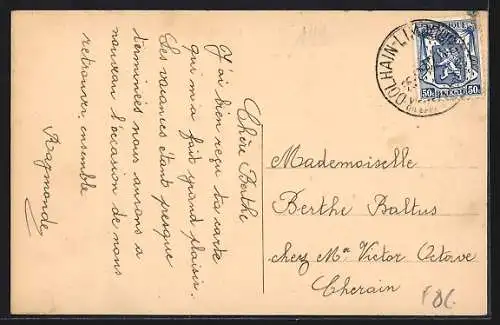 Chère Berthe
J'ai bien reçu ta carte
qui m'a fait grand plaisir.
Les vacances étant presque
terminées nous aurons a
nouveau l'occasion de nous
retrouver, ensemble
Raymonde
DOLHAIN-LI
BELGIE
50c 50c
Mademoiselle
Berthe Baltus
chez Mr Victor Octave
Cherain